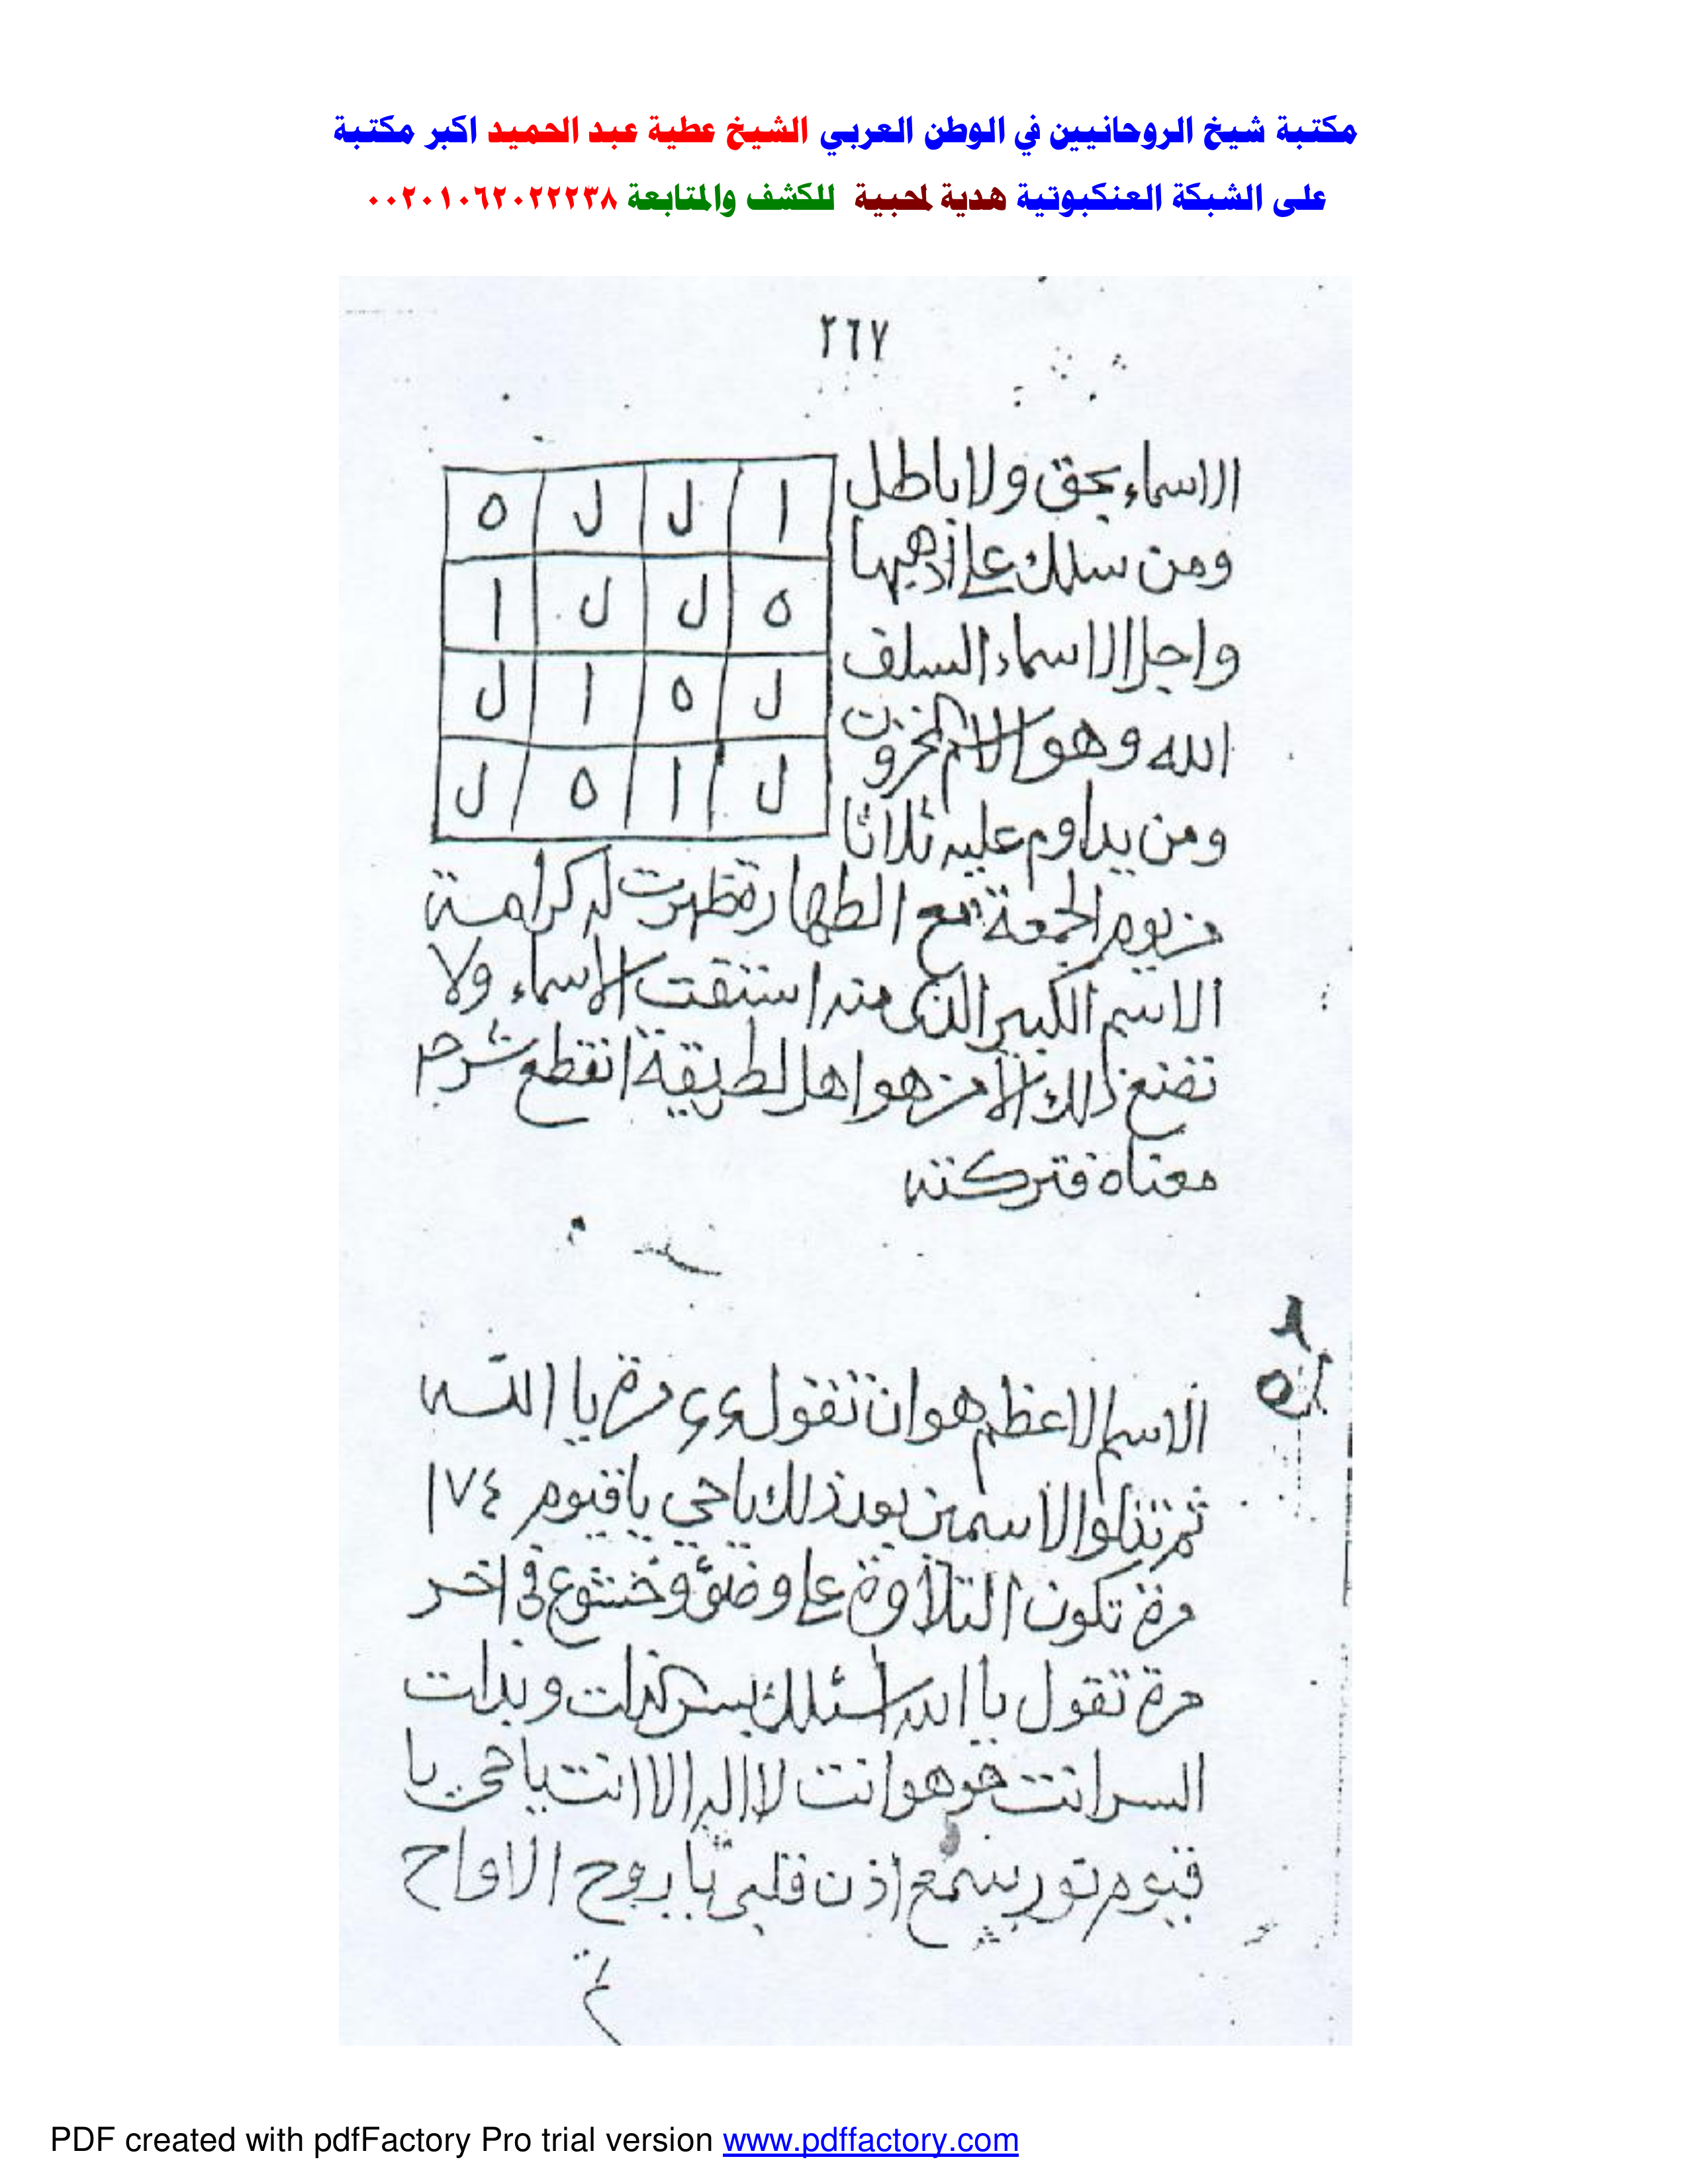 مكتبة شيخ الروحانيين في الوطن العربي الشيخ عطية عبد الحميد اكبر مكتبة
على الشبكة العنكبوتية هدية لمحبية للكشف والمتابعة ٠٠٢٠١٠٦٢٠٢٢٢٣٨
٢٦٧
الاسماء بحق ولا باطل
ومن سلك على اذهبها
واجل الاسماء السلف
الله وهو الاسم المخزون
ومن يداوم عليه ثلاثا
ا ل ل ه
ه ل ل ا
ل ه ا ل
ل ا ه ل
من يوم الجمعة مع الطهارة ظهرت له كرامة
الاسم الكبير الذى منه استقت الاسماء ولا
تضع ذلك الا من هو اهل لطريقة انقطع شرح
معناه فتركته
الاسم الاعظم هو ان تقول ٤٤ مرة يا الله
ثم تتلوا الاسمين بعد ذلك يا حي يا قيوم ١٧٤
مرة تكون التلاوة على وضؤ وخشوع في اخر
مرة تقول يا الله اسئلك بسر الذات وبذات
السر انت هو وهو انت لا اله الا انت يا حي يا
قيوم نور بسمع اذن قلبي يا روح الاواح